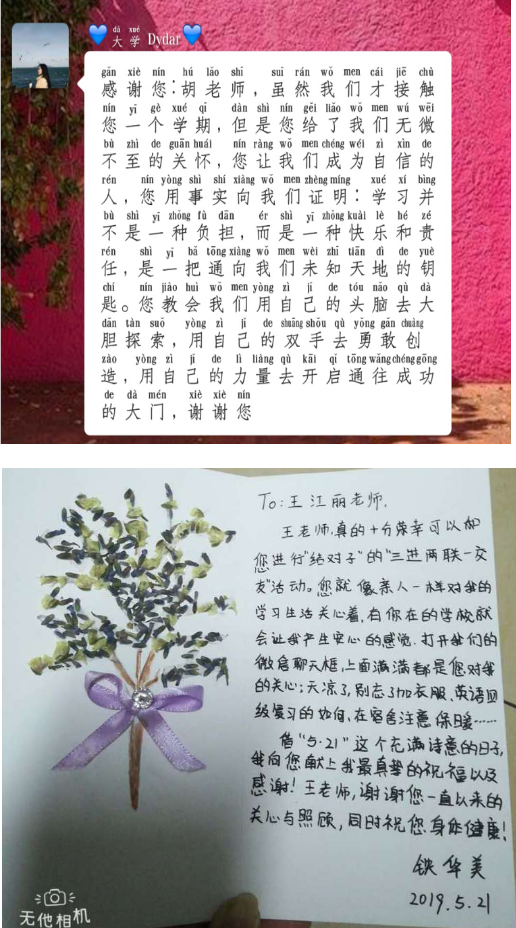 dà xué
💙大学 Dydar💙
gǎn xiè nín hú lǎo shī suī rán wǒ men cái jiē chù
感谢您:胡老师,虽然我们才接触
nín yī gè xué qī dàn shì nín gěi liǎo wǒ men wú wēi
您一个学期,但是您给了我们无微
bù zhì de guān huái nín ràng wǒ men chéng wéi zì xìn de
不至的关怀,您让我们成为自信的
rén nín yòng shì shí xiàng wǒ men zhèng míng xué xí bìng
人,您用事实向我们证明:学习并
bù shì yī zhǒng fù dān ér shì yī zhǒng kuài lè hé zé
不是一种负担,而是一种快乐和责
rén shì yī bǎ tōng xiàng wǒ men wèi zhī tiān dì de yuè
任,是一把通向我们未知天地的钥
chí nín jiāo huì wǒ men yòng zì jǐ de tóu nǎo qù dà
匙。您教会我们用自己的头脑去大
dǎn tàn suǒ yòng zì jǐ de shuāng shǒu qù yǒng gǎn chuàng
胆探索,用自己的双手去勇敢创
zào yòng zì jǐ de lì liàng qù kāi qǐ tōng wǎng chéng gōng
造,用自己的力量去开启通往成功
de dà mén xiè xiè nín
的大门,谢谢您
To:王江丽老师,
王老师,真的十分荣幸可以和
您进行"结对子"的"三进两联一交
友"活动。您就像亲人一样对我的
学习生活关心着,有你在的学校就
会让我产生安心的感觉.打开我们的
微信聊天框,上面满满都是您对我
的关心:天凉了,别忘了加衣服、英语四
级复习的如何,在宿舍注意保暖……
借"5·21"这个充满诗意的日子,
我向您献上我最真挚的祝福以及
感谢!王老师,谢谢您一直以来的
关心与照顾,同时祝您身体健康!
铁华美
2019.5.21
无他相机